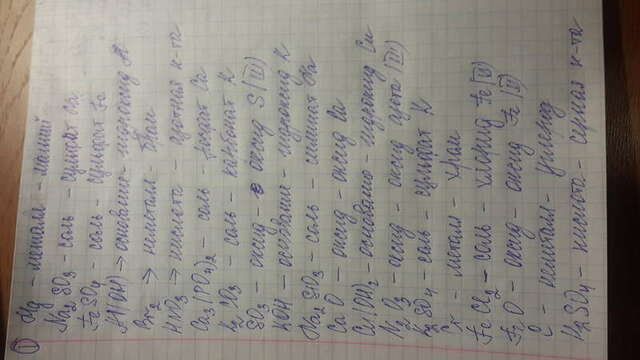 ① Mg - металл - магний
Na2SO3 - соль - сульфит Na
FeSO4 - соль - сульфат Fe
Al(OH) → основание - гидроксид Al
Br2 → неметалл - бром
HNO3 → кислота - азотная к-та
Ca3(PO4)2 - соль - фосфат Ca
K2CO3 - соль - карбонат K
SO3 - оксид - оксид S (VI)
KOH - основание - гидроксид K
Na2SiO3 - соль - силикат Na
CaO - оксид - оксид Ca
Ca(OH)2 - основание - гидроксид Ca
N2O3 - оксид - оксид азота (III)
K2SO4 - соль - сульфат K
Cr - металл - хром
FeCl2 - соль - хлорид Fe (II)
FeO - оксид - оксид Fe (II)
C - неметалл - углерод
H2SO4 - кислота - серная к-та